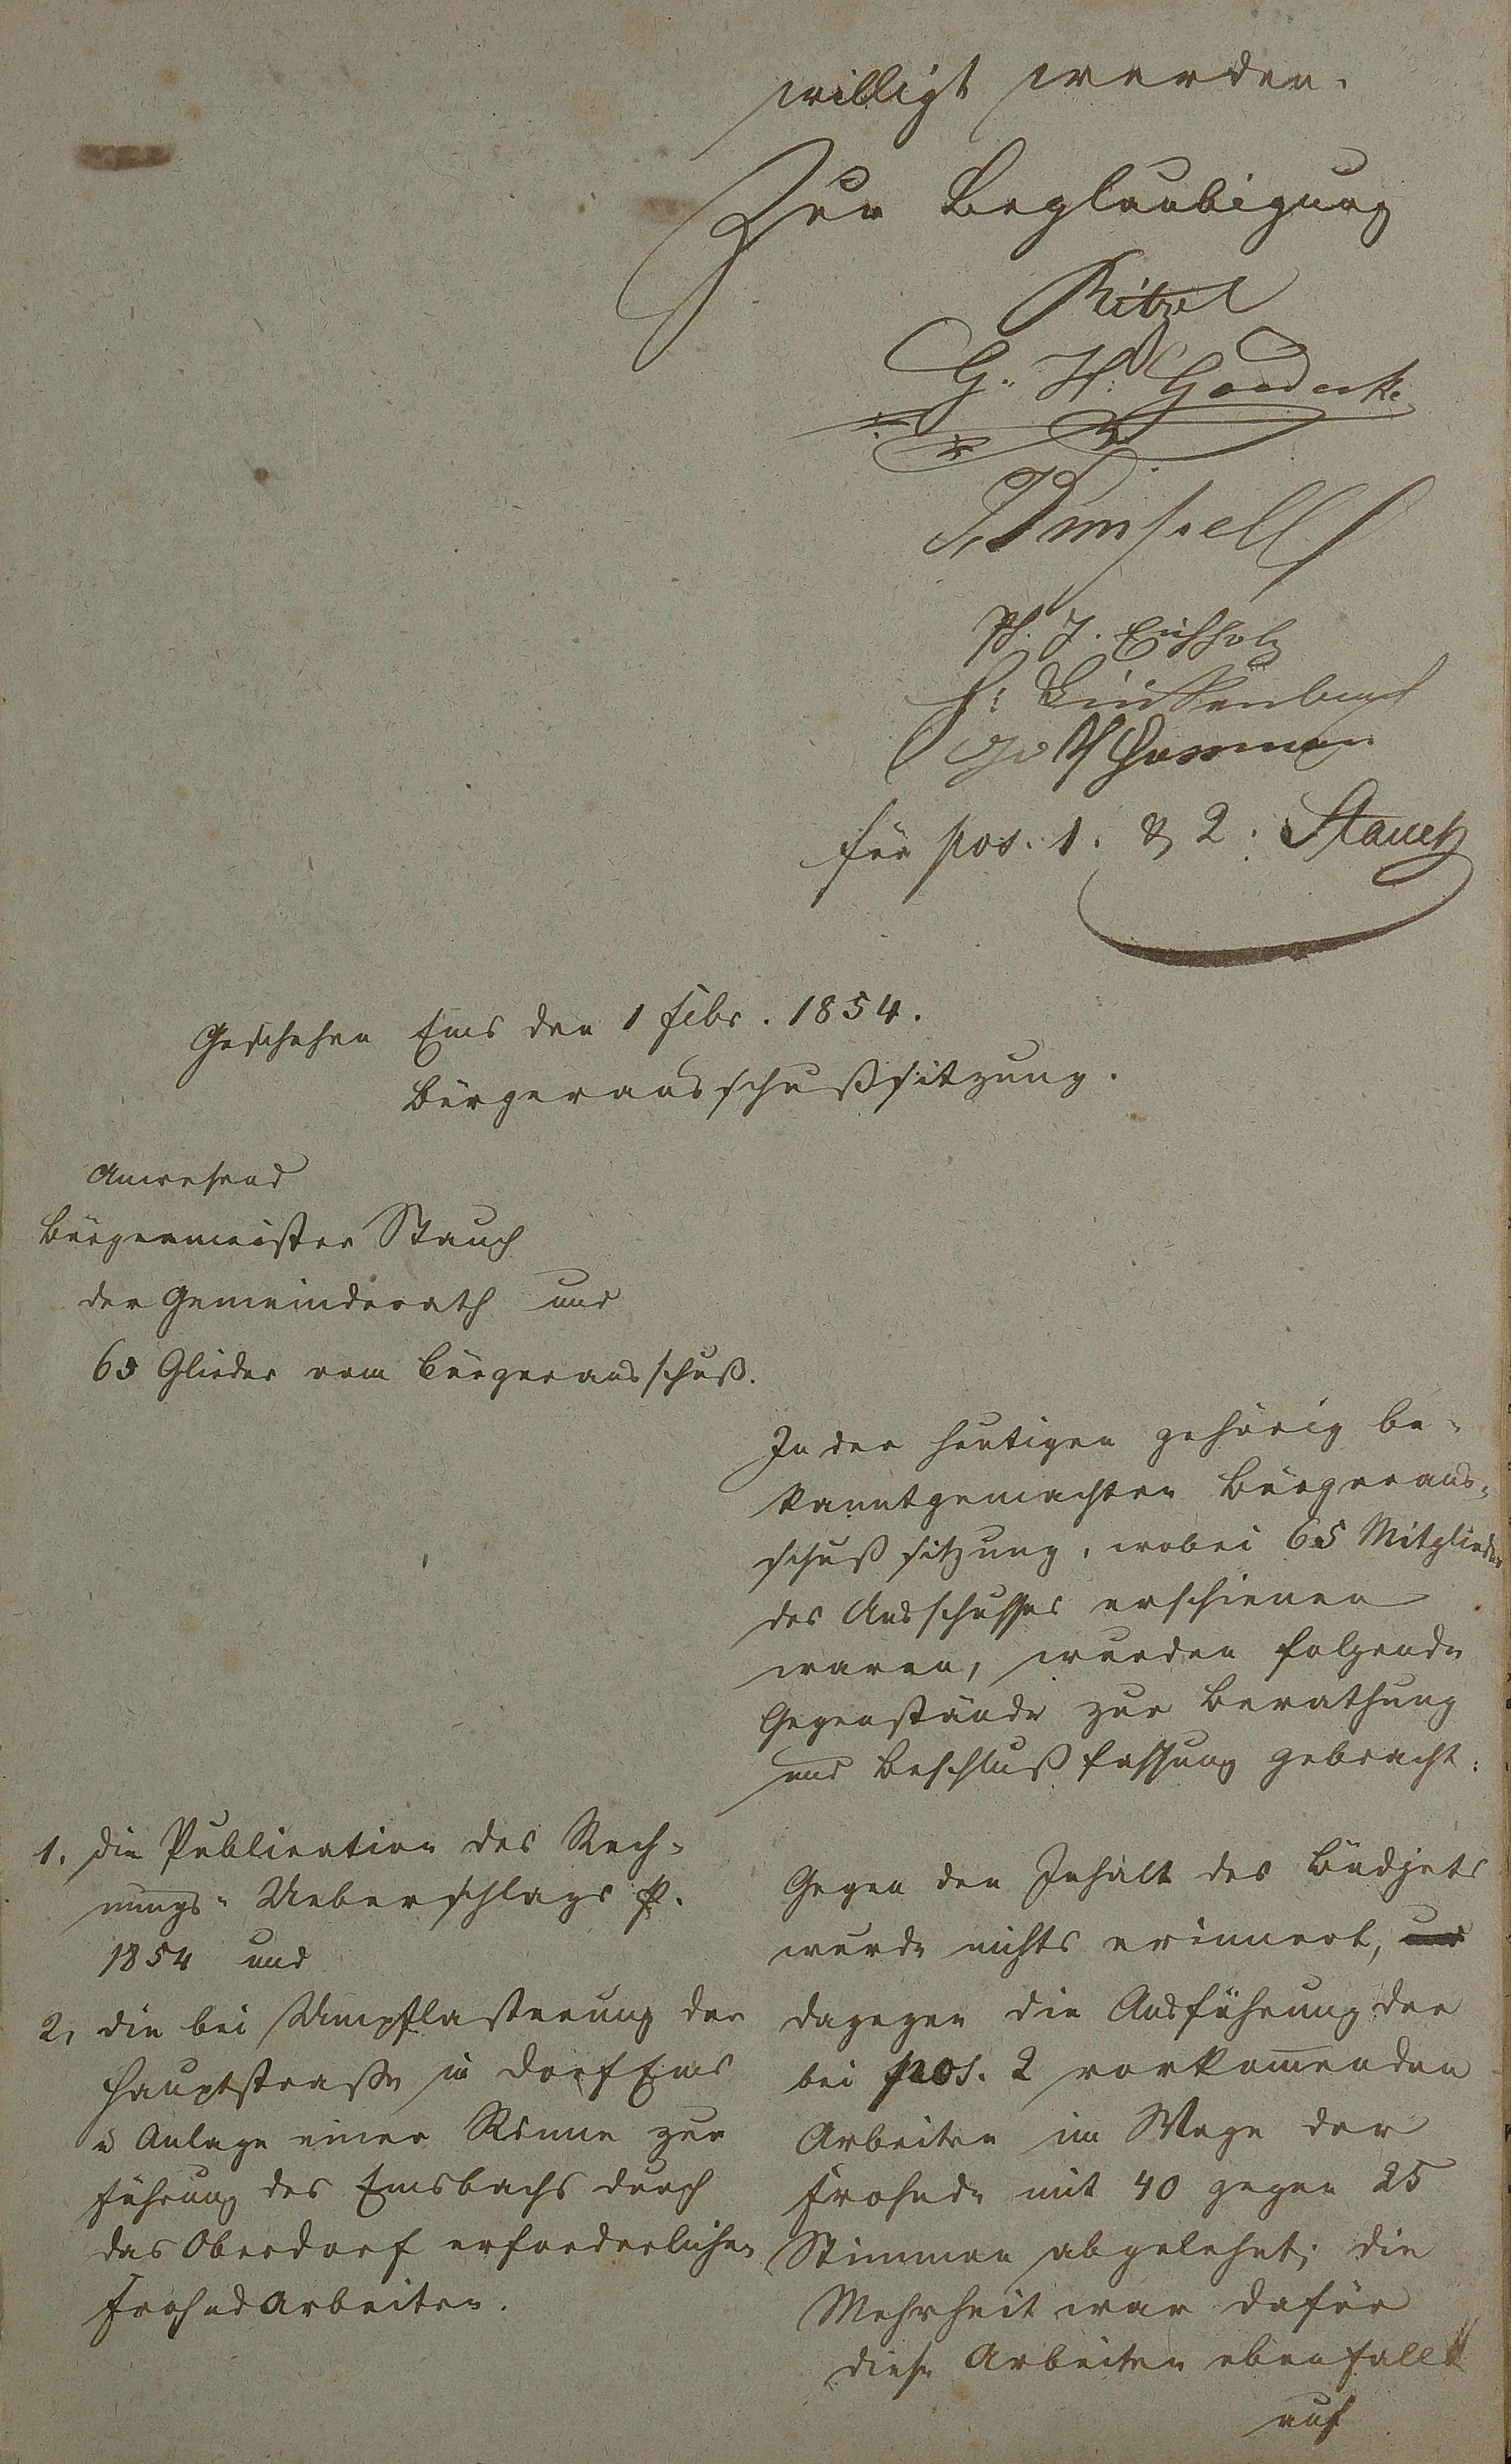 willigt werden.
Zur Beglaubigung
Ritzel
G. H. Goedecke
Ph. J. Eichholz
für pos. 1. & 2. Stauch
Geschehen Ems den 1 Febr. 1854.
Bürgerausschußsitzung.
Anwesend
Bürgermeister Stauch
der Gemeinderath und
65 Glieder vom Bürgerausschuß.
In der heutigen gehörig be-
kanntgemachten Bürgeraus-
schuß sitzung, wobei 65 Mitglieder
des Ausschusses erschienen
waren, wurden folgende
Gegenstände zur Berathung
und Beschlußfassung gebracht:
1. die Publication des Rech-
nungs-Ueberschlags p.
1854 und
2, die bei Umpflasterung der
Hauptstraße in Dorf Ems
u Anlage einer Rinne zur
Führung des Emsbachs durch
das Oberdorf erforderlichen
Frohndarbeiten.
Gegen den Inhalt des Büdjets
wurde nichts erinnert, und
dagegen die Ausführung der
bei pos. 2 vorkom̅enden
Arbeiten im Wege der
Frohnde mit 40 gegen 25
Stimmen abgelehnt; die
Mehrheit war dafür
diese Arbeiten ebenfalls
auf